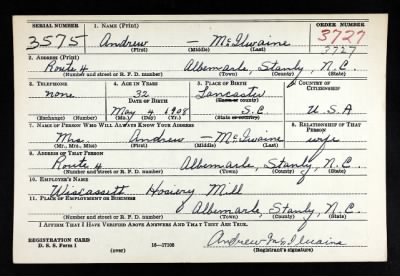 SERIAL NUMBER 1. NAME (Print) ORDER NUMBER
3575 Andrew — McIlwaine 3727
(First) (Middle) (Last) 3727
2. ADDRESS (Print)
Route 4 Albemarle, Stanly, N.C.
(Number and street or R. F. D. number) (Town) (County) (State)
3. TELEPHONE 4. AGE IN YEARS 5. PLACE OF BIRTH 6. COUNTRY OF CITIZENSHIP
none 32 Lancaster
DATE OF BIRTH (Town or county)
May 4 1908 S.C. U.S.A
(Exchange) (Number) (Mo.) (Day) (Yr.) (State or country)
7. NAME OF PERSON WHO WILL ALWAYS KNOW YOUR ADDRESS 8. RELATIONSHIP OF THAT PERSON
Mrs. Andrew — McIlwaine wife
(Mr., Mrs., Miss) (First) (Middle) (Last)
9. ADDRESS OF THAT PERSON
Route 4 Albemarle, Stanly, N.C.
(Number and street or R. F. D. number) (Town) (County) (State)
10. EMPLOYER'S NAME
Wiscassett Hosiery Mill
11. PLACE OF EMPLOYMENT OR BUSINESS
Albemarle, Stanly, N.C.
(Number and street or R. F. D. number) (Town) (County) (State)
I AFFIRM THAT I HAVE VERIFIED ABOVE ANSWERS AND THAT THEY ARE TRUE.
REGISTRATION CARD Andrew McIlwaine
D. S. S. Form 1 (over) 16—17105 (Registrant's signature)